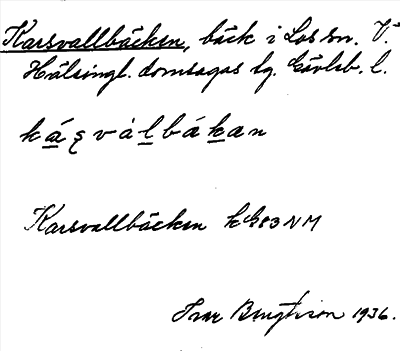 Karsvallbäcken, bäck i Los sn. V.
Hälsingl. domsagas tg. Gävleb. l.
kás̨vàlbákan
Karsvallbäcken kG83NM
Ivar Bengtsson 1936.